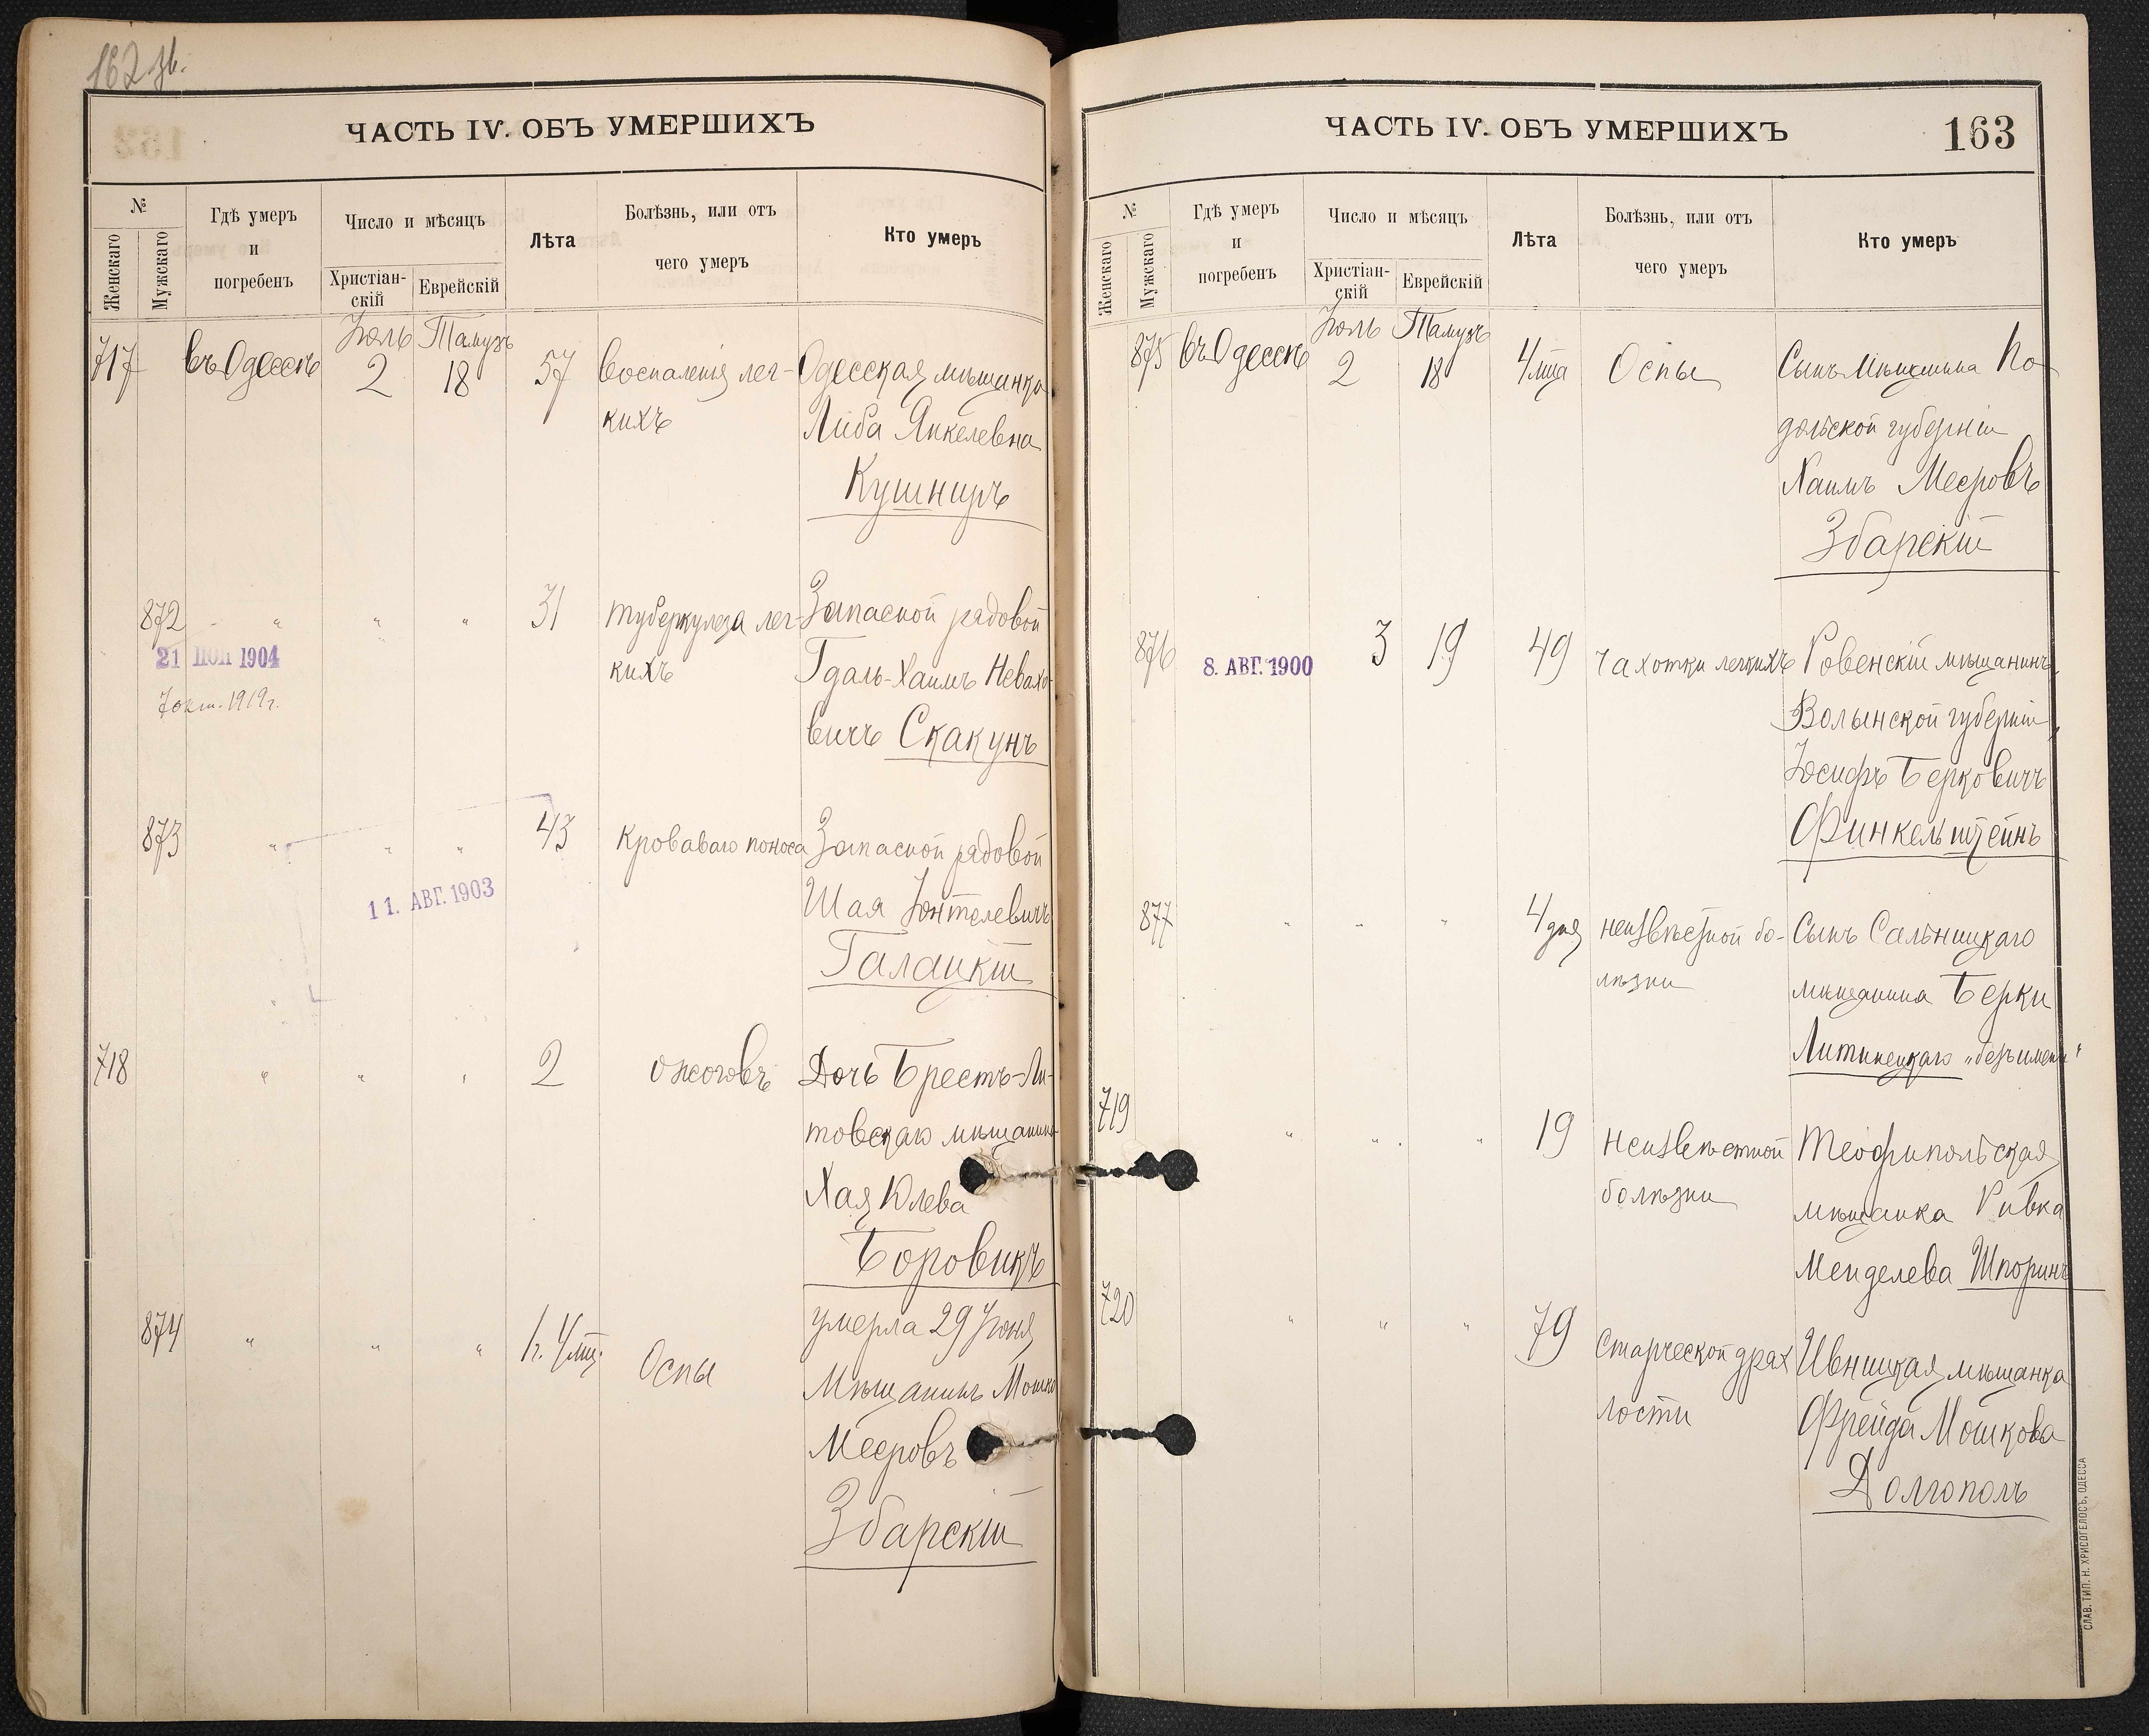 162 зв.
ЧАСТЬ IV. ОБЪ УМЕРШИХЪ
№
Женскаго
Мужскаго
Гдѣ умеръ
и
погребенъ
Число и мѣсяцъ
Христіан-
скій
Еврейскій
Лѣта
Болѣзнь, или отъ
чего умеръ
Кто умеръ
Іюль Тамузъ
717 въ Одессѣ 2 18 57 воспаленія лег- Одесская мѣщанка
кихъ Либа Янкелевна
Кушниръ
872 " " " 31 туберкулеза лег- Запасной рядовой
21 ІЮЛ 1904
кихъ Гдаль-Хаимъ Невахо-
7 окт. 1919 г.
вичъ Скакунъ
873 " " " 43 кроваваго поноса Запасной рядовой
11. АВГ. 1903
Шая Іонтелевичъ
Галацкій
718 " " " 2 ожоговъ Дочь Брестъ-Ли-
товскаго мѣщанина
Хая Юлева
Боровикъ
умерла 29 Іюня
874 " " " 1 г. 4 мц. Оспы Мѣщанинъ Мошко
Мееровъ
Збарскій
ЧАСТЬ IV. ОБЪ УМЕРШИХЪ
163
№
Женскаго
Мужскаго
Гдѣ умеръ
и
погребенъ
Число и мѣсяцъ
Христіан-
скій
Еврейскій
Лѣта
Болѣзнь, или отъ
чего умеръ
Кто умеръ
Іюль Тамузъ
875 въ Одессѣ 2 18 4 мца Оспы Сынъ Мѣщанина По
дольской губерніи
Хаимъ Мееровъ
Збарскій
876 8. АВГ. 1900 3 19 49 чахотки легкихъ Ровенскій мѣщанинъ,
Волынской губерніи,
Іосифъ Берковичъ
Финкельштейнъ
877 " " " 4 дня неизвѣстной бо- Сынъ Сальницкаго
лѣзни мѣщанина Берки
Литинецкаго "безъимени"
719 " " " 19 неизвѣстной Теофипольская
болѣзни мѣщанка Ривка
Менделева Шпоринъ
720 " " " 79 старческой дрях Ивницкая мѣщанка
лости Фрейда Мошкова
Долгополъ
СЛАВ. ТИП. Н. ХРИСОГЕЛОСЪ, ОДЕССА